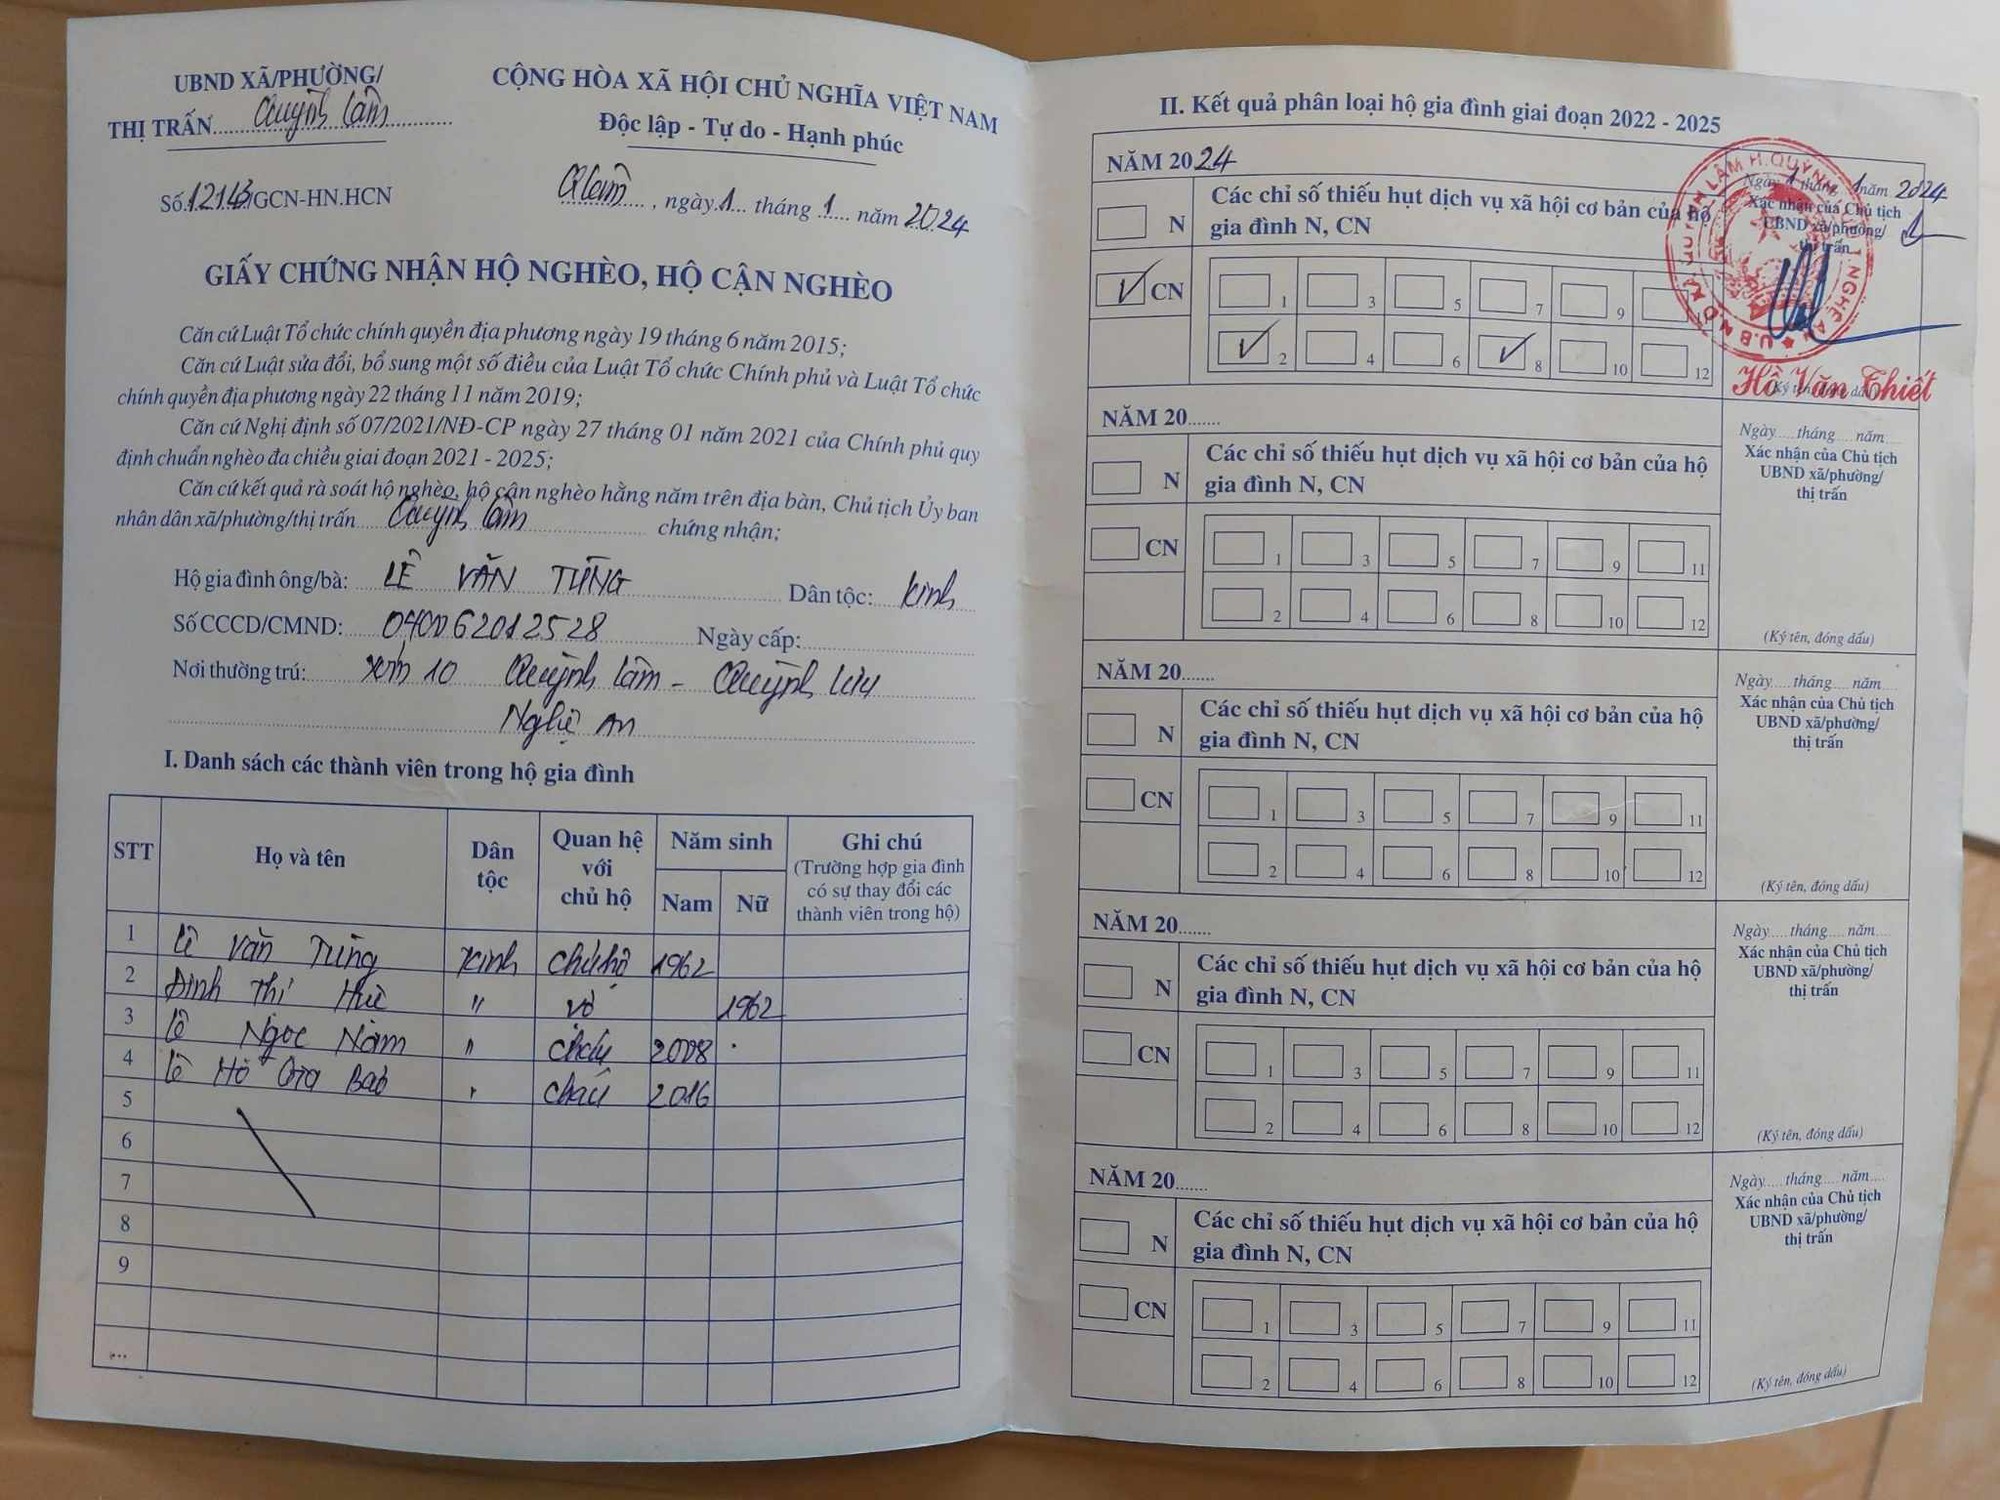 UBND XÃ/PHƯỜNG/
THỊ TRẤN Quỳnh Lâm
CỘNG HÒA XÃ HỘI CHỦ NGHĨA VIỆT NAM
Độc lập - Tự do - Hạnh phúc
Số 1214/GCN-HN.HCN
Q Lâm, ngày 1 tháng 1 năm 2024
GIẤY CHỨNG NHẬN HỘ NGHÈO, HỘ CẬN NGHÈO
Căn cứ Luật Tổ chức chính quyền địa phương ngày 19 tháng 6 năm 2015;
Căn cứ Luật sửa đổi, bổ sung một số điều của Luật Tổ chức Chính phủ và Luật Tổ chức
chính quyền địa phương ngày 22 tháng 11 năm 2019;
Căn cứ Nghị định số 07/2021/NĐ-CP ngày 27 tháng 01 năm 2021 của Chính phủ quy
định chuẩn nghèo đa chiều giai đoạn 2021 - 2025;
Căn cứ kết quả rà soát hộ nghèo, hộ cận nghèo hằng năm trên địa bàn, Chủ tịch Ủy ban
nhân dân xã/phường/thị trấn Quỳnh Lâm chứng nhận;
Hộ gia đình ông/bà: LÊ VĂN TÙNG Dân tộc: Kinh
Số CCCD/CMND: 040062012528 Ngày cấp:
Nơi thường trú: xóm 10 Quỳnh Lâm - Quỳnh Lưu
Nghệ An
I. Danh sách các thành viên trong hộ gia đình
STT Họ và tên Dân tộc Quan hệ với chủ hộ Năm sinh Nam Nữ Ghi chú (Trường hợp gia đình có sự thay đổi các thành viên trong hộ)
1 Lê Văn Tùng Kinh chủ hộ 1962
2 Đinh Thị Huê " vợ 1962
3 Lê Ngọc Nam " cháu 2008
4 Lê Hồ Gia Bảo " cháu 2016
5
6
7
8
9
...
II. Kết quả phân loại hộ gia đình giai đoạn 2022 - 2025
NĂM 2024
Ngày 1 tháng 1 năm 2024
N Các chỉ số thiếu hụt dịch vụ xã hội cơ bản của hộ
gia đình N, CN
Xác nhận của Chủ tịch
UBND xã/phường/
thị trấn
✓ CN
1 3 5 7 9 11
✓ 2 4 6 ✓ 8 10 12
(Ký tên, đóng dấu)
Hồ Văn Thiết
NĂM 20
Ngày tháng năm
N Các chỉ số thiếu hụt dịch vụ xã hội cơ bản của hộ
gia đình N, CN
Xác nhận của Chủ tịch
UBND xã/phường/
thị trấn
CN
1 3 5 7 9 11
2 4 6 8 10 12
(Ký tên, đóng dấu)
NĂM 20
Ngày tháng năm
N Các chỉ số thiếu hụt dịch vụ xã hội cơ bản của hộ
gia đình N, CN
Xác nhận của Chủ tịch
UBND xã/phường/
thị trấn
CN
1 3 5 7 9 11
2 4 6 8 10 12
(Ký tên, đóng dấu)
NĂM 20
Ngày tháng năm
N Các chỉ số thiếu hụt dịch vụ xã hội cơ bản của hộ
gia đình N, CN
Xác nhận của Chủ tịch
UBND xã/phường/
thị trấn
CN
1 3 5 7 9 11
2 4 6 8 10 12
(Ký tên, đóng dấu)
NĂM 20
Ngày tháng năm
N Các chỉ số thiếu hụt dịch vụ xã hội cơ bản của hộ
gia đình N, CN
Xác nhận của Chủ tịch
UBND xã/phường/
thị trấn
CN
1 3 5 7 9 11
2 4 6 8 10 12
(Ký tên, đóng dấu)